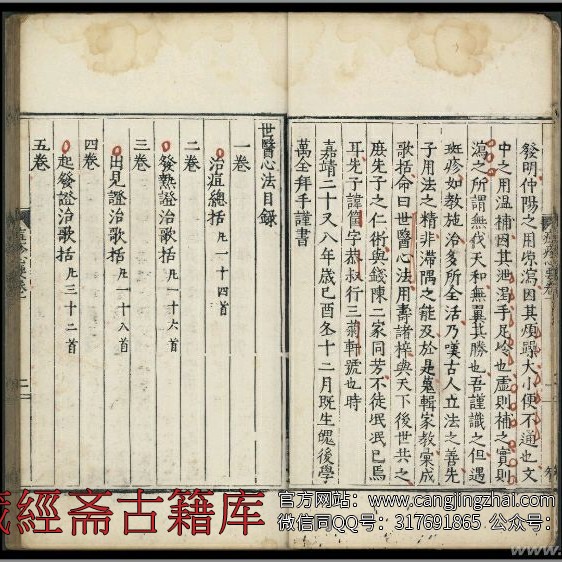 發明仲陽之用凉瀉因其煩躁大小便不通也文
中之用溫補因其泄渴手足冷也虛則補之實則
瀉之所謂無伐天和無翼其勝也吾謹識之但遇
斑疹如教施治多所全活乃嘆古人立法之善先
子用法之精非滯隅之能及於是蒐輯家教彙成
歌括命曰世醫心法用壽諸梓與天下後世共之
庶先子之仁術與錢陳二家同芳不徒泯泯已焉
耳先子諱筐字恭叔行三菊軒號也時
嘉靖二十又八年歲己酉冬十二月既生魄後學
萬全拜手謹書
世醫心法目錄
一卷
治痘總括 凡一十四首
二卷
發熱證治歌括 凡一十六首
三卷
出見證治歌括 凡一十八首
四卷
起發證治歌括 凡三十二首
五卷
藏經斋古籍库
官方网站：www.cangjingzhai.com
微信同QQ号：317691865 公众号：
www.